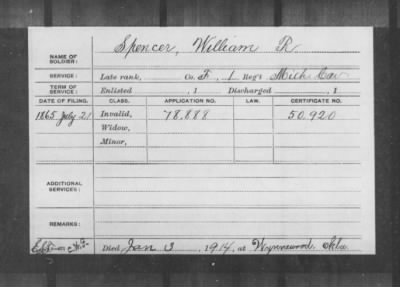 NAME OF SOLDIER: Spencer, William R.
SERVICE: Late rank, Co. F, 1 Reg't Mich Cav
TERM OF SERVICE: Enlisted , 1 Discharged , 1
DATE OF FILING. CLASS. APPLICATION NO. LAW. CERTIFICATE NO.
1865 July 21 Invalid, 78.888 50.920
Widow,
Minor,
ADDITIONAL SERVICES:
REMARKS:
Died Jan 3, 1914, at Wynnewood, Okla